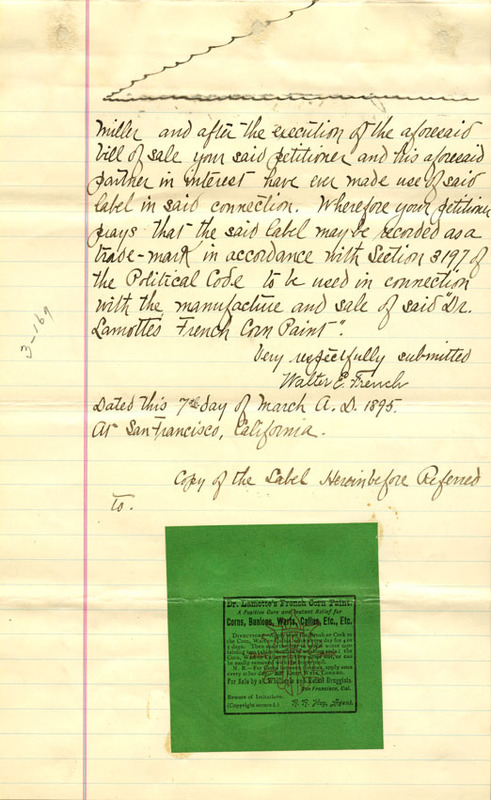 Miller and after the execution of the aforesaid
bill of sale your said petitioner and his aforesaid
partner in interest have ever made use of said
label in said connection. Wherefore your petitioner
prays that the said label may be recorded as a
trade-mark in accordance with Section 3197 of
the Political Code to be used in connection
with the manufacture and sale of said "Dr.
Lamotte's French Corn Paint".
Very respectfully submitted
Walter E. French
Dated this 7th day of March A. D. 1895.
At San Francisco, California.
3-169
Copy of the Label Hereinbefore Referred
to.
Dr. Lamotte's French Corn Paint.
A Positive Cure and Instant Relief for
Corns, Bunions, Warts, Callus, Etc., Etc.
DIRECTIONS
the Corn, day for 4 or
5 days. Then
Corn,
be easily removed
N. B.—For apply once
every other day.
For Sale by all Wholesale and Retail Druggists.
San Francisco, Cal.
Beware of Imitations.
(Copyright secured.) Agent.